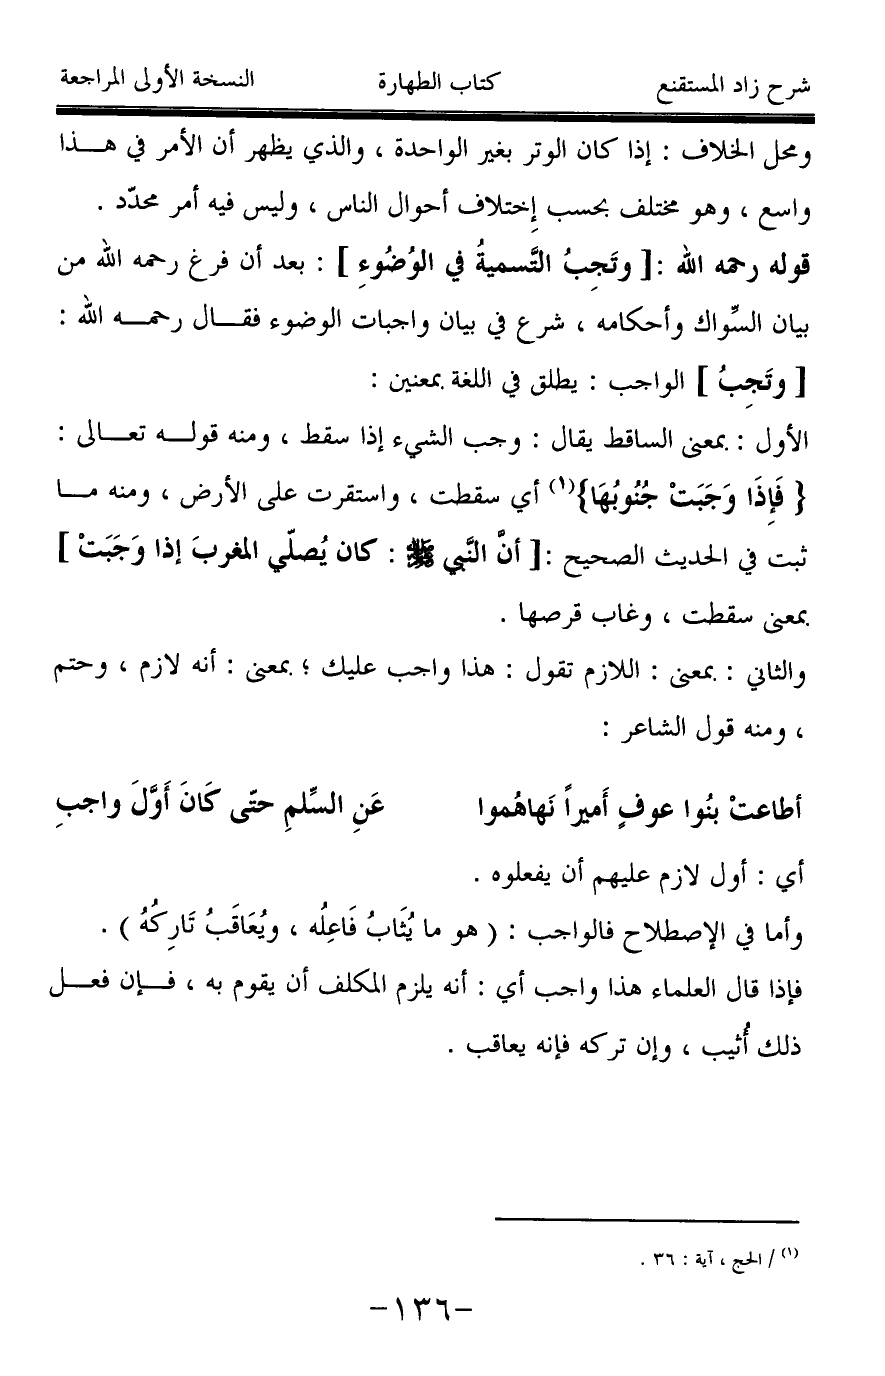 شرح زاد المستقنع كتاب الطهارة النسخة الأولى المراجعة
ومحل الخلاف : إذا كان الوتر بغير الواحدة ، والذي يظهر أن الأمر في هـــذا
واسع ، وهو مختلف بحسب إختلاف أحوال الناس ، وليس فيه أمر محدّد .
قوله رحمه الله :[ وتَجِبُ التَّسميةُ في الوُضُوءِ ] : بعد أن فرغ رحمه الله من
بيان السِّواك وأحكامه ، شرع في بيان واجبات الوضوء فقـــال رحمـــه الله :
[ وتَجِبُ ] الواجب : يطلق في اللغة بمعنين :
الأول : بمعنى الساقط يقال : وجب الشيء إذا سقط ، ومنه قولـــه تعـــالى :
{ فَإِذَا وَجَبَتْ جُنُوبُهَا}(١) أي سقطت ، واستقرت على الأرض ، ومنه مـــا
ثبت في الحديث الصحيح :[ أنَّ النَّبي ﷺ : كان يُصلّي المغربَ إذا وَجَبَتْ ]
بمعنى سقطت ، وغاب قرصها .
والثاني : بمعنى : اللازم تقول : هذا واجب عليك ؛ بمعنى : أنه لازم ، وحتم
، ومنه قول الشاعر :
أطاعتْ بنُوا عوفٍ أَميراً نَهاهُموا عَنِ السِّلمِ حتّى كَانَ أَوَّلَ واجبِ
أي : أول لازم عليهم أن يفعلوه .
وأما في الإصطلاح فالواجب : ( هو ما يُثَابُ فَاعِلُه ، ويُعَاقَبُ تَارِكُهُ ) .
فإذا قال العلماء هذا واجب أي : أنه يلزم المكلف أن يقوم به ، فـــإن فعـــل
ذلك أُثيب ، وإن تركه فإنه يعاقب .
(١) / الحج ، آية : ٣٦ .
-١٣٦-